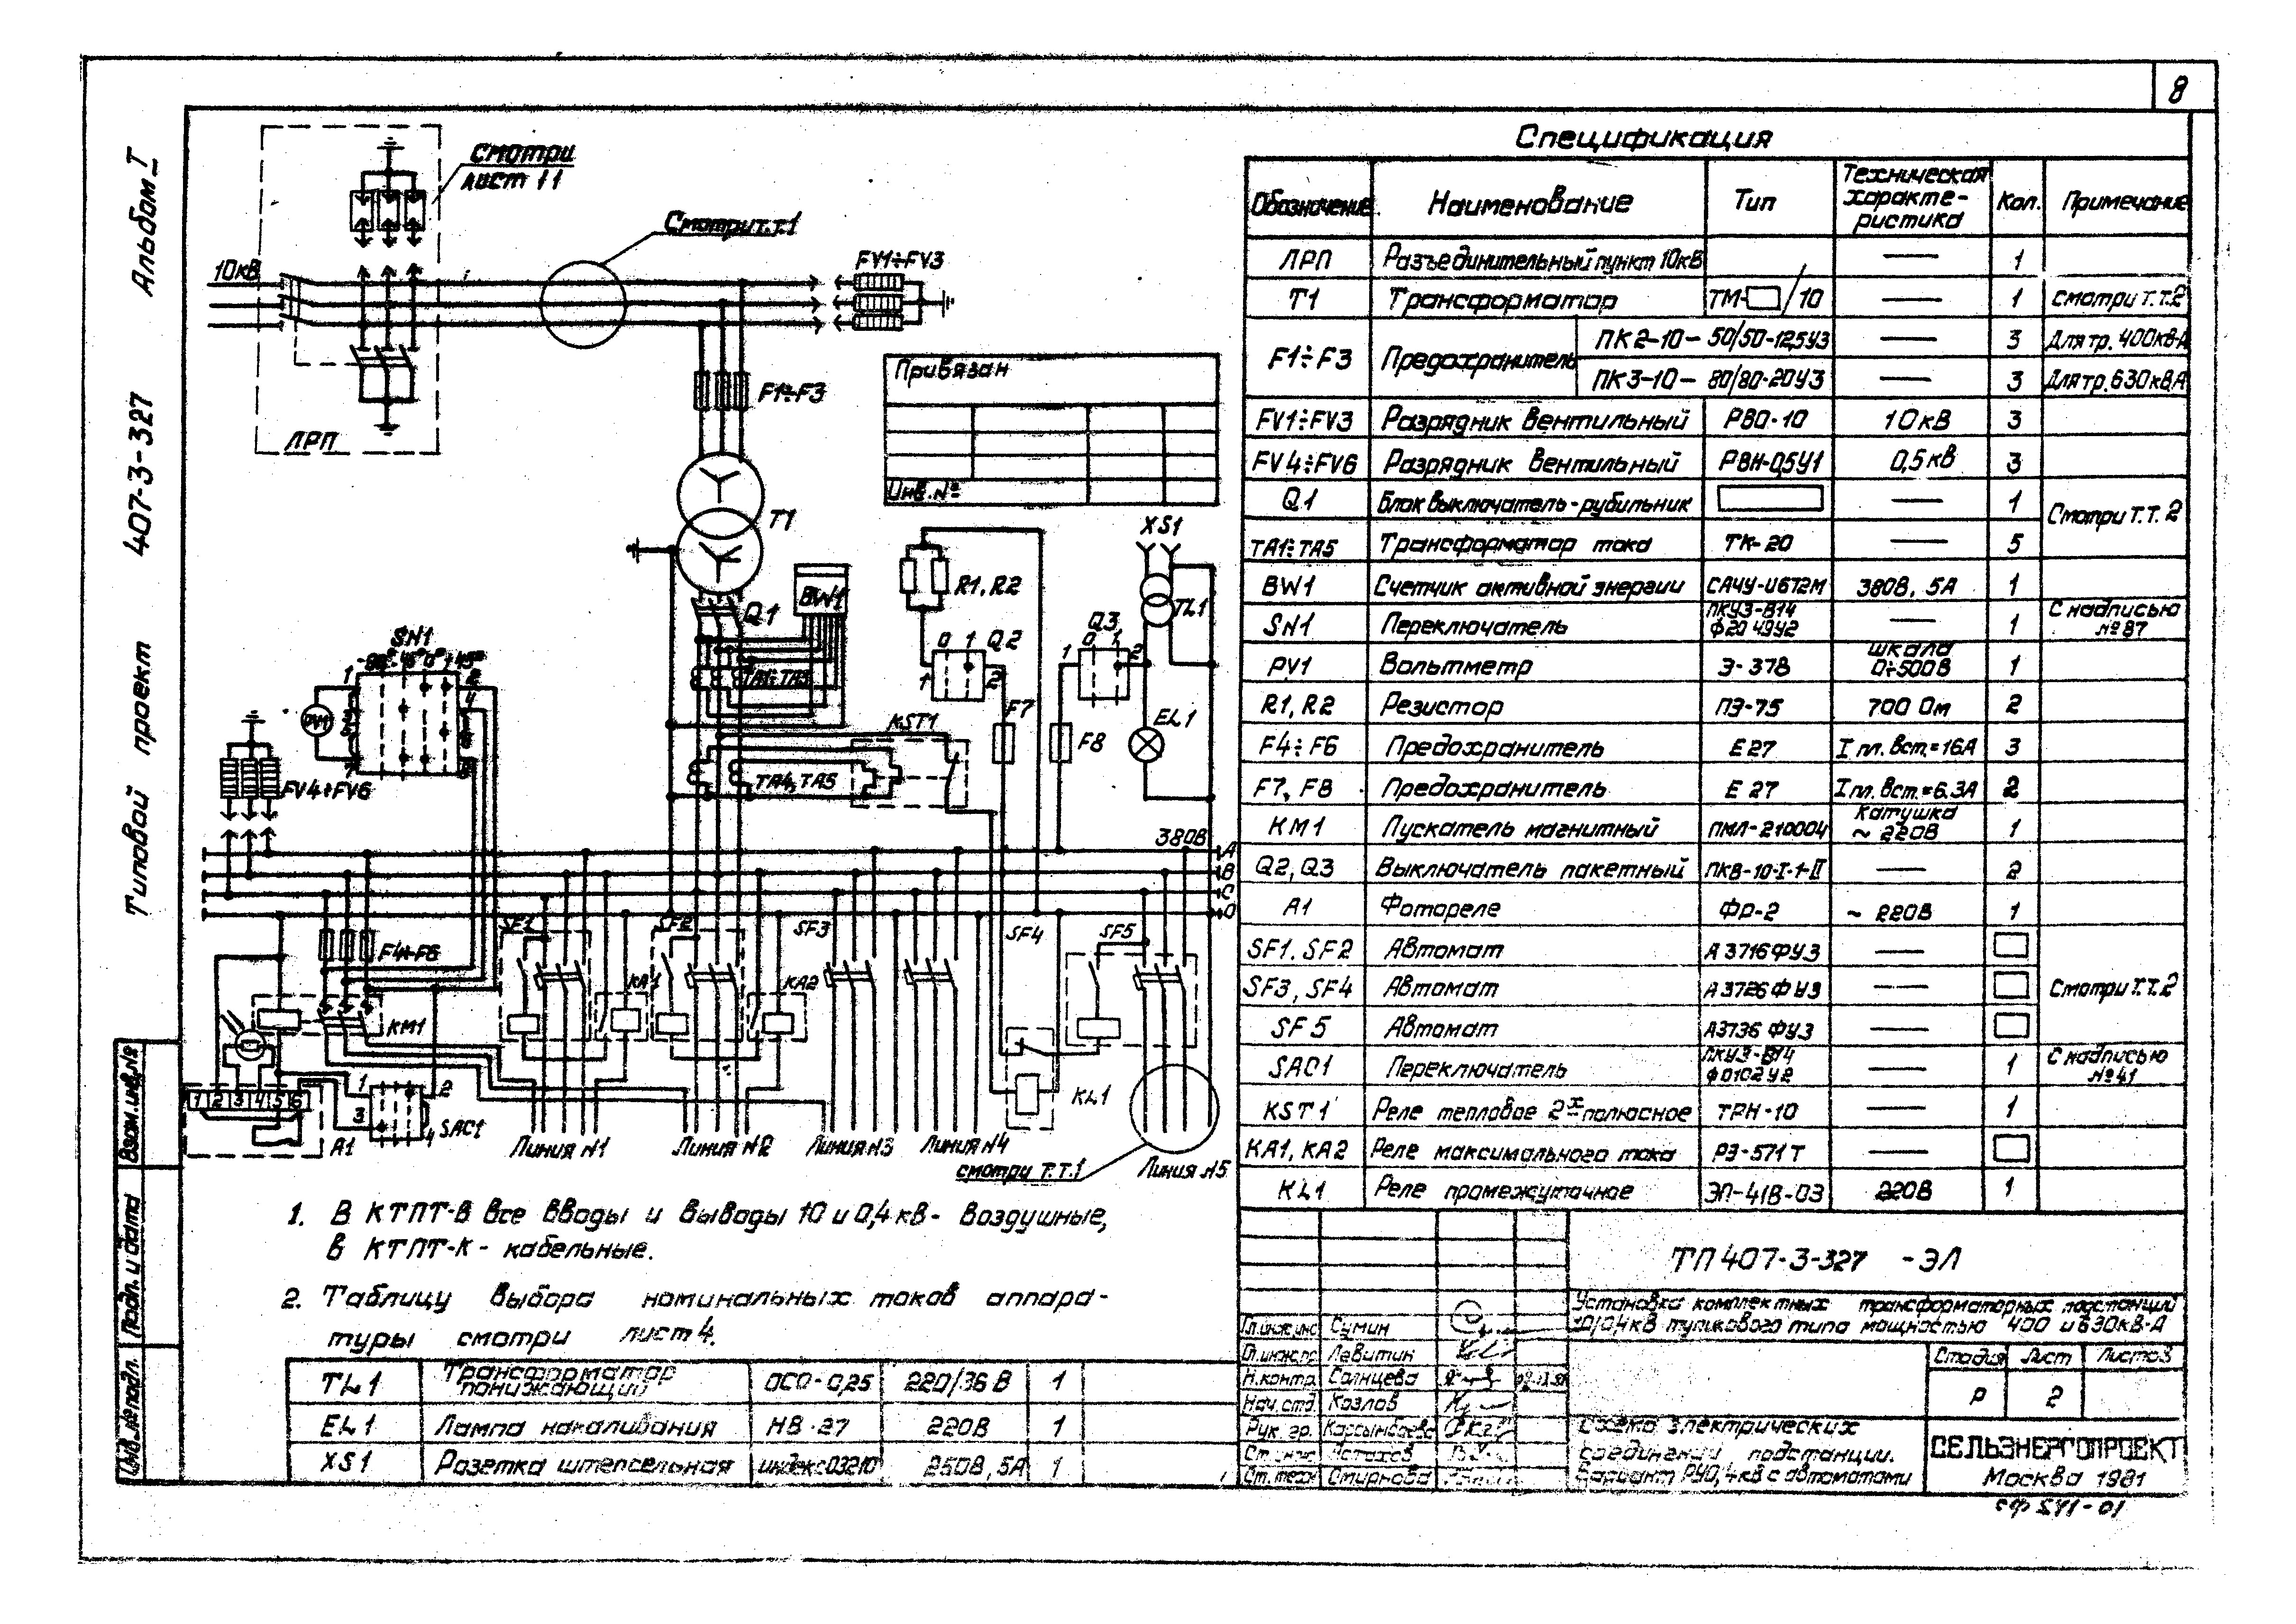 8
Альбом I
Типовой проект 407-3-327
Смотри
лист 11
Смотри т.т.1
10кВ
FV1÷FV3
ЛРП
F1÷F3
Привязан
Инв.№
T1
XS1
R1, R2
TL1
BW1
Q1
Q2
Q3
0 1
0 1
1 2
1 2
SN1
TA1÷TA3
PV1
KST1
F7
F8
EL1
FV4÷FV6
TA4, TA5
380В
A
B
C
0
SF1
SF2
SF3
SF4
SF5
F4÷F6
KA1
KA2
KM1
KL1
1 2 3 4 5 6
1 2
3 4
SAC1
A1
Линия N1
Линия N2
Линия N3
Линия N4
Линия N5
смотри т.т.1
1. В КТПТ-В все вводы и выводы 10 и 0,4 кВ- воздушные,
в КТПТ-К - кабельные.
2. Таблицу выбора номинальных токов аппара-
туры смотри лист 4.
TL1 Трансформатор понижающий ОСО-0,25 220/36 В 1
EL1 Лампа накаливания НВ-27 220В 1
XS1 Розетка штепсельная индекс 03210 250В, 5А 1
Спецификация
Обозначение Наименование Тип Техническая характе-ристика Кол. Примечание
ЛРП Разъединительный пункт 10кВ — 1
T1 Трансформатор ТМ-□/10 — 1 смотри т.т.2
F1÷F3 Предохранитель ПК2-10-50/50-12,5У3 — 3 Для тр. 400кВ·А
ПК3-10-80/80-20У3 — 3 Для тр. 630кВ·А
FV1÷FV3 Разрядник вентильный РВО-10 10кВ 3
FV4÷FV6 Разрядник вентильный РВН-0,5У1 0,5кВ 3
Q1 Блок выключатель-рубильник — 1 Смотри т.т. 2
TA1÷TA5 Трансформатор тока ТК-20 — 5
BW1 Счетчик активной энергии САЧУ-И672М 380В, 5А 1
SN1 Переключатель ПКУ3-В14 Ф2049У2 — 1 С надписью №87
PV1 Вольтметр Э-378 шкала 0÷500В 1
R1, R2 Резистор ПЭ-75 700 Ом 2
F4÷F6 Предохранитель Е27 I пл. вст.=16А 3
F7, F8 Предохранитель Е27 I пл. вст.=6.3А 2
KM1 Пускатель магнитный ПМЛ-210004 Катушка ~ 220В 1
Q2, Q3 Выключатель пакетный ПКВ-10-I-1-II — 2
A1 Фотореле ФР-2 ~ 220В 1
SF1. SF2 Автомат А3716ФУ3 —
SF3, SF4 Автомат А3726ФУ3 — Смотри т.т.2
SF5 Автомат А3736ФУ3 —
SAC1 Переключатель ПКУ3-В14 Ф0102У2 — 1 С надписью №41
KST1 Реле тепловое 2х полюсное ТРН-10 — 1
KA1, KA2 Реле максимального тока РЭ-571Т —
KL1 Реле промежуточное ЭП-41В-03 220В 1
ТП 407-3-327 -ЭЛ
Установка комплектных трансформаторных подстанций
10/0,4кВ тупикового типа мощностью 400 и 630кВ·А
Гл.инж.инс. Сумин
Гл.инж.пр. Левитин
Н.контр. Солнцева
Нач.отд. Козлов
Рук. гр.
Ст. инж.
Ст. техн. Смирнова
Стадия Лист Листов
Р 2
Схема электрических
соединений подстанции.
Вариант РУ0,4кВ с автоматами
СЕЛЬЭНЕРГОПРОЕКТ
Москва 1981
Взам.инв.№
Подп. и дата
Инв.№ подл.